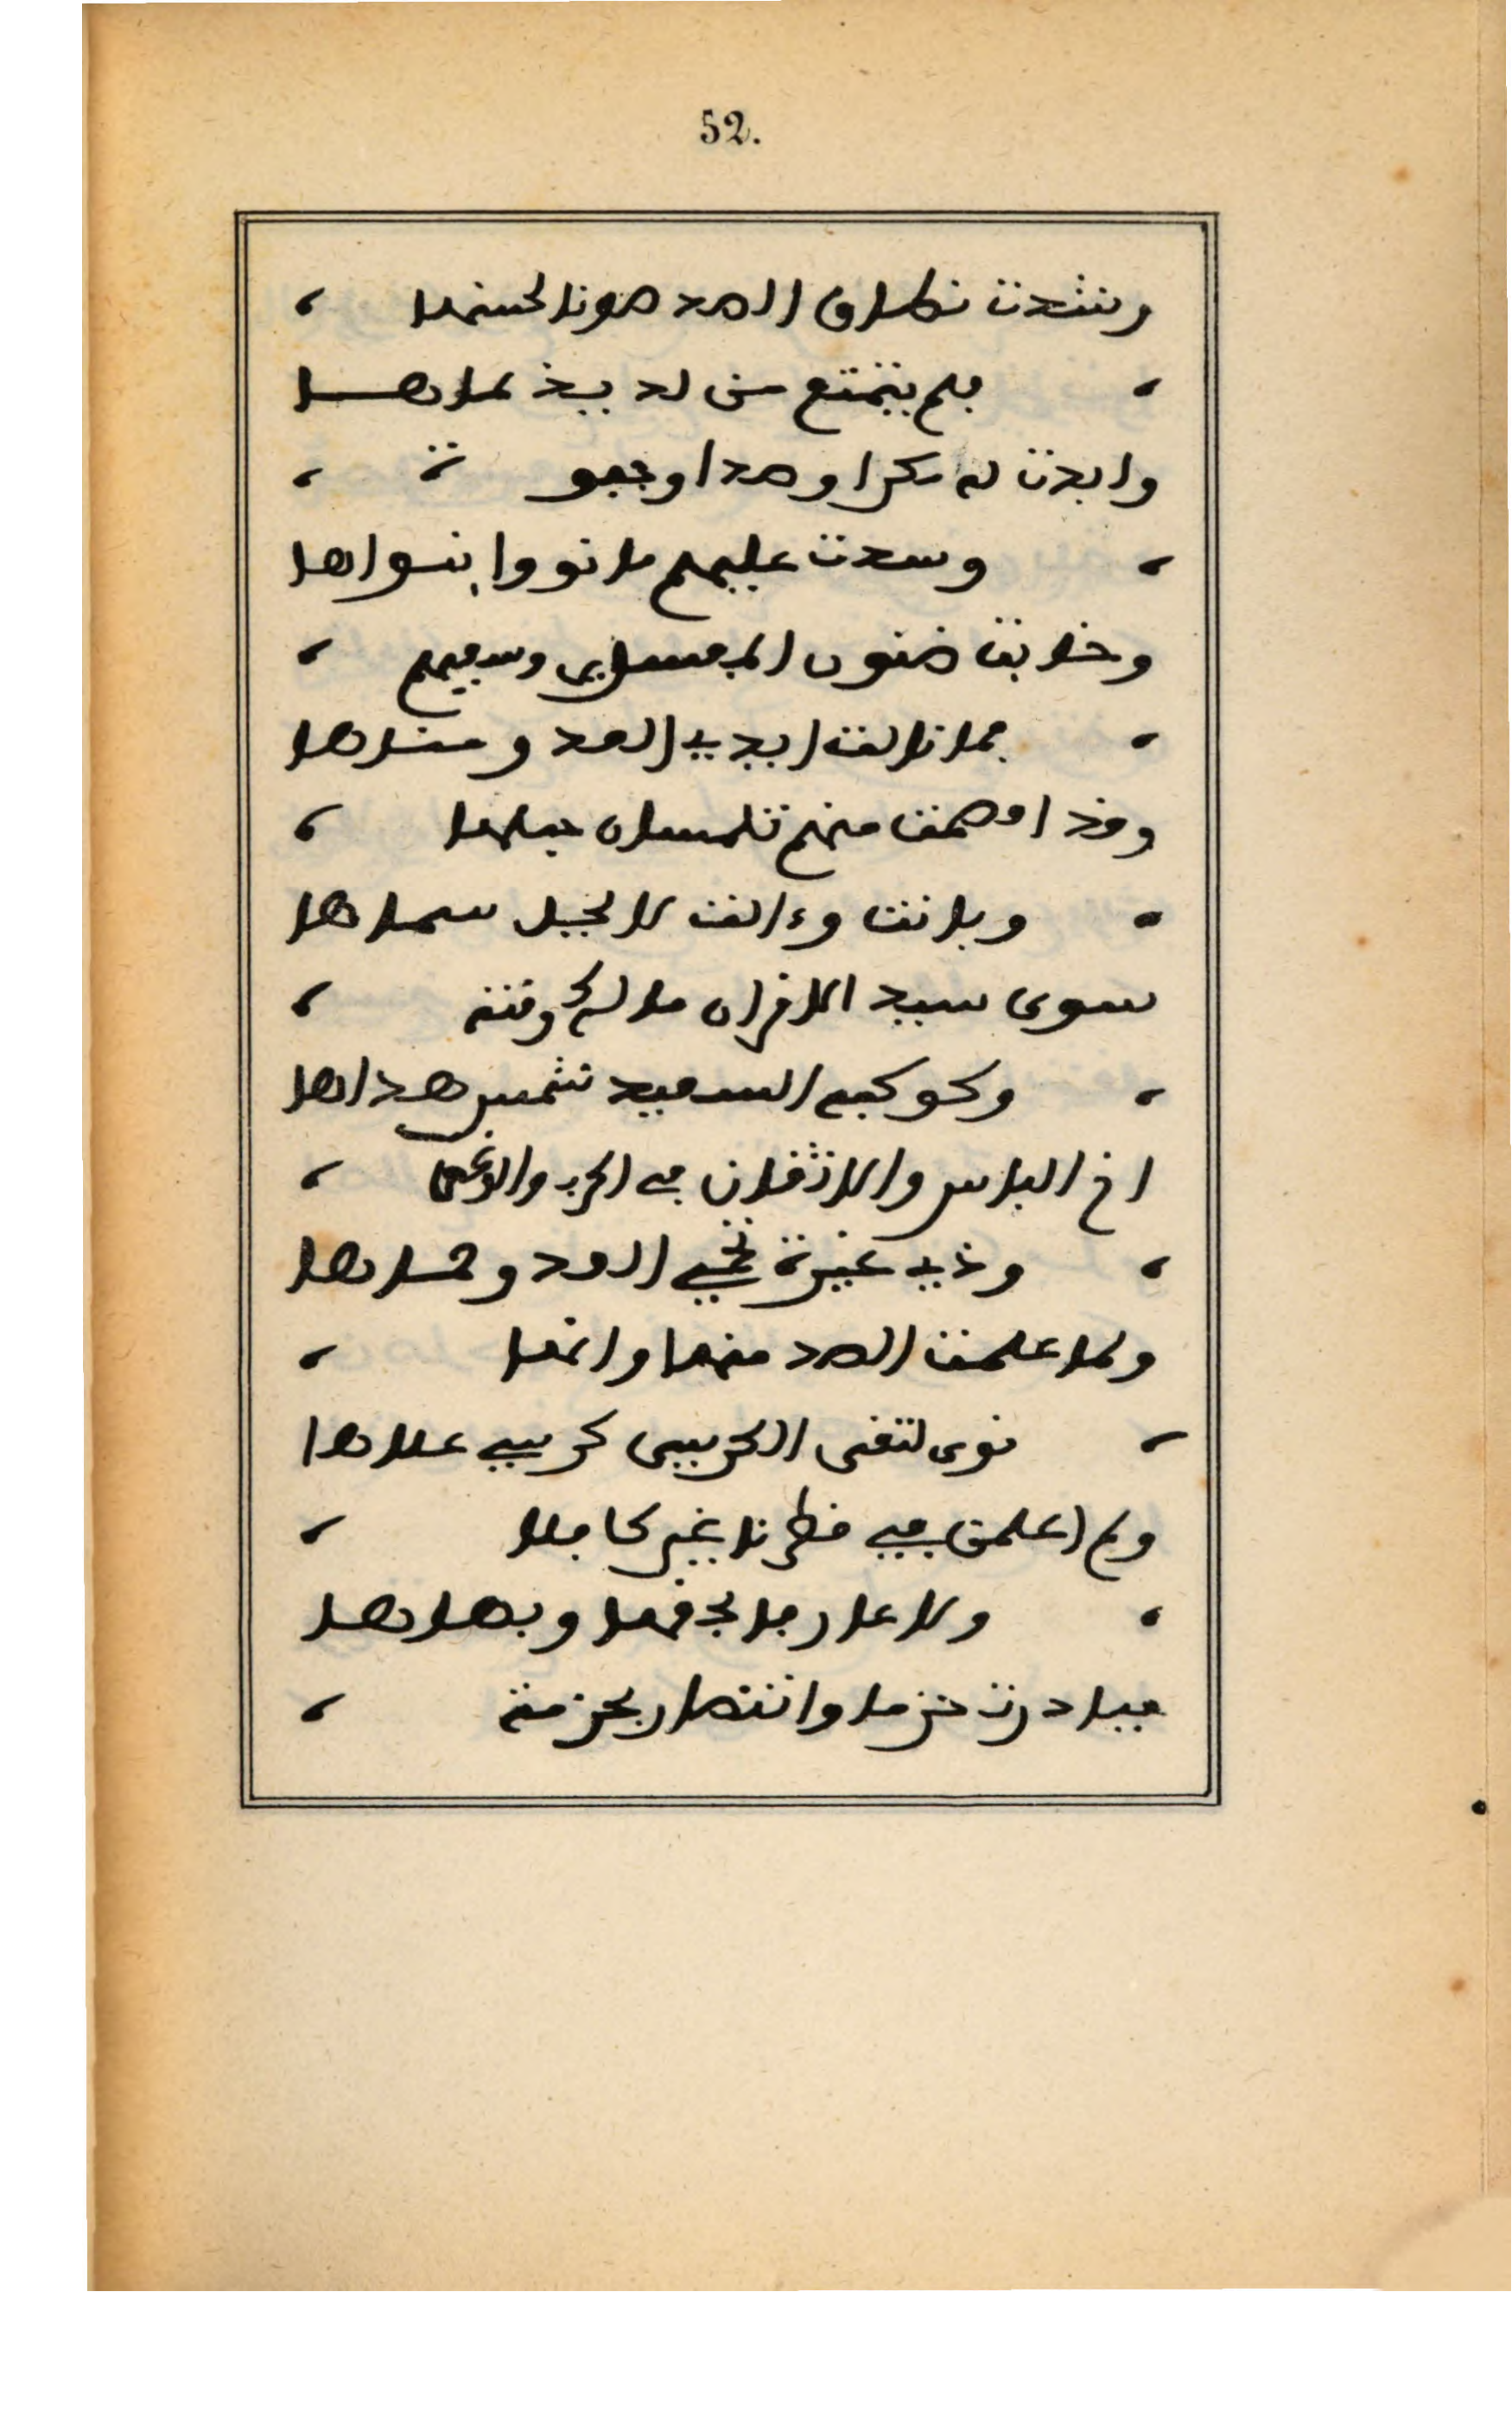 52.
وشدت نطاق الصد صونا لحسنها
فلم يتمتع من لذيذ لماها
وابدت له مكرا وصدا وجفوة
وسدت عليهم ما نووا بنواها
وخابت ظنون المفسدين وسعيهم
فما نالت ايدي العدو مناها
وقد افصحت منهم تلمسان حبلها
وبانت وءالت لا لحبل سماها
سوى سيد الاقران مالك وقته
وكوكبه السعيد شمس هداها
اخ الباس والاتقان في الحرب والوغى
وذي غيرة تحمي العدو وحماها
ولما علمت الصد منها وانها
نوى لتفى الحربين كربي علاها
ولم اعلمن في قطرنا غير كافلا
ولا عارفا بحقها وبهاها
فبادرت حزما وانتصارا بعزمة